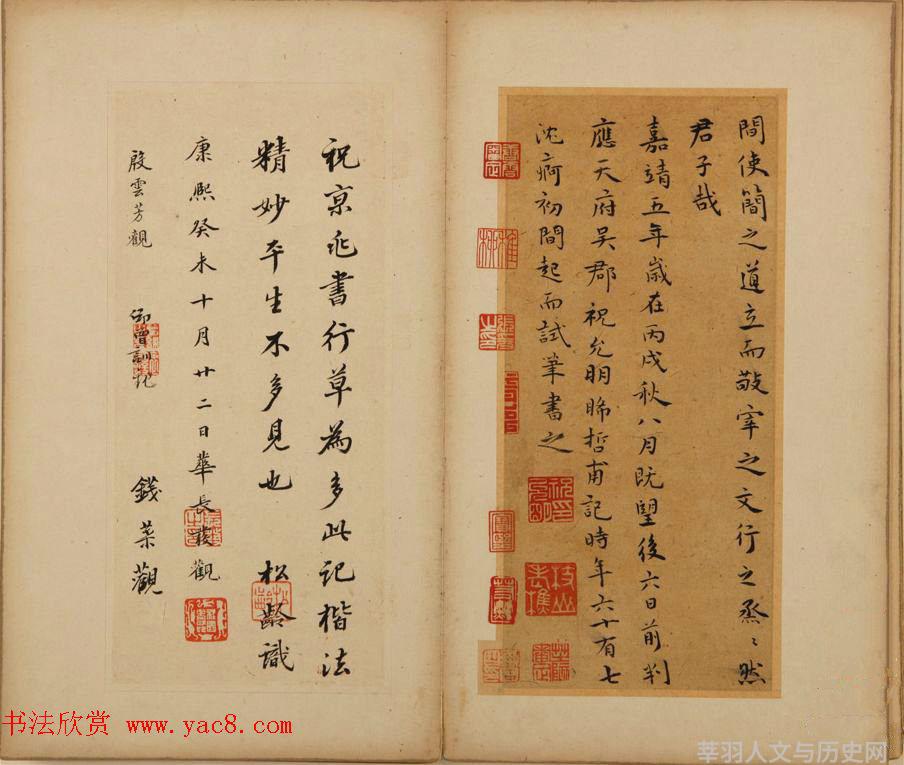 間使簡之道立而敬宰之文行之烝〻然
君子哉
嘉靖五年歲在丙戌秋八月既朢後六日前判
應天府吳郡祝允明晞哲甫記時年六十有七
沈痾初間起而試筆書之
枝山老樵
祝京兆書行草為多此記楷法
精妙平生不多見也 松齡識
康熙癸未十月廿二日華長發觀
殷雲芳觀 曾訓記 錢 觀
书法欣赏 www.yac8.com
莘羽人文与历史网